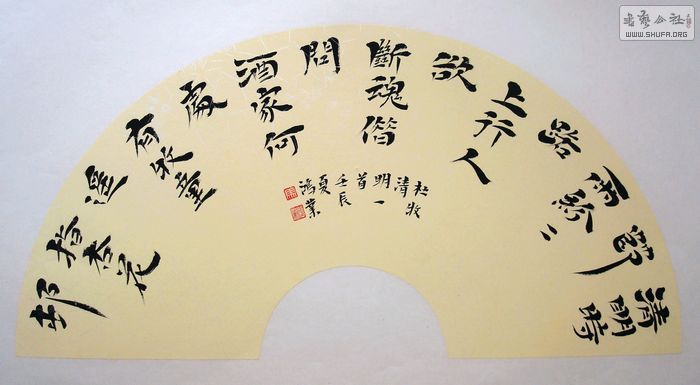 清明時
節
雨紛〻
路
上行人
欲
斷魂借
問
酒家何
處
有牧童
遥
指杏花
邨
杜牧
清
明一
首
壬辰
夏
鴻業
書藝公社
WWW.SHUFA.ORG